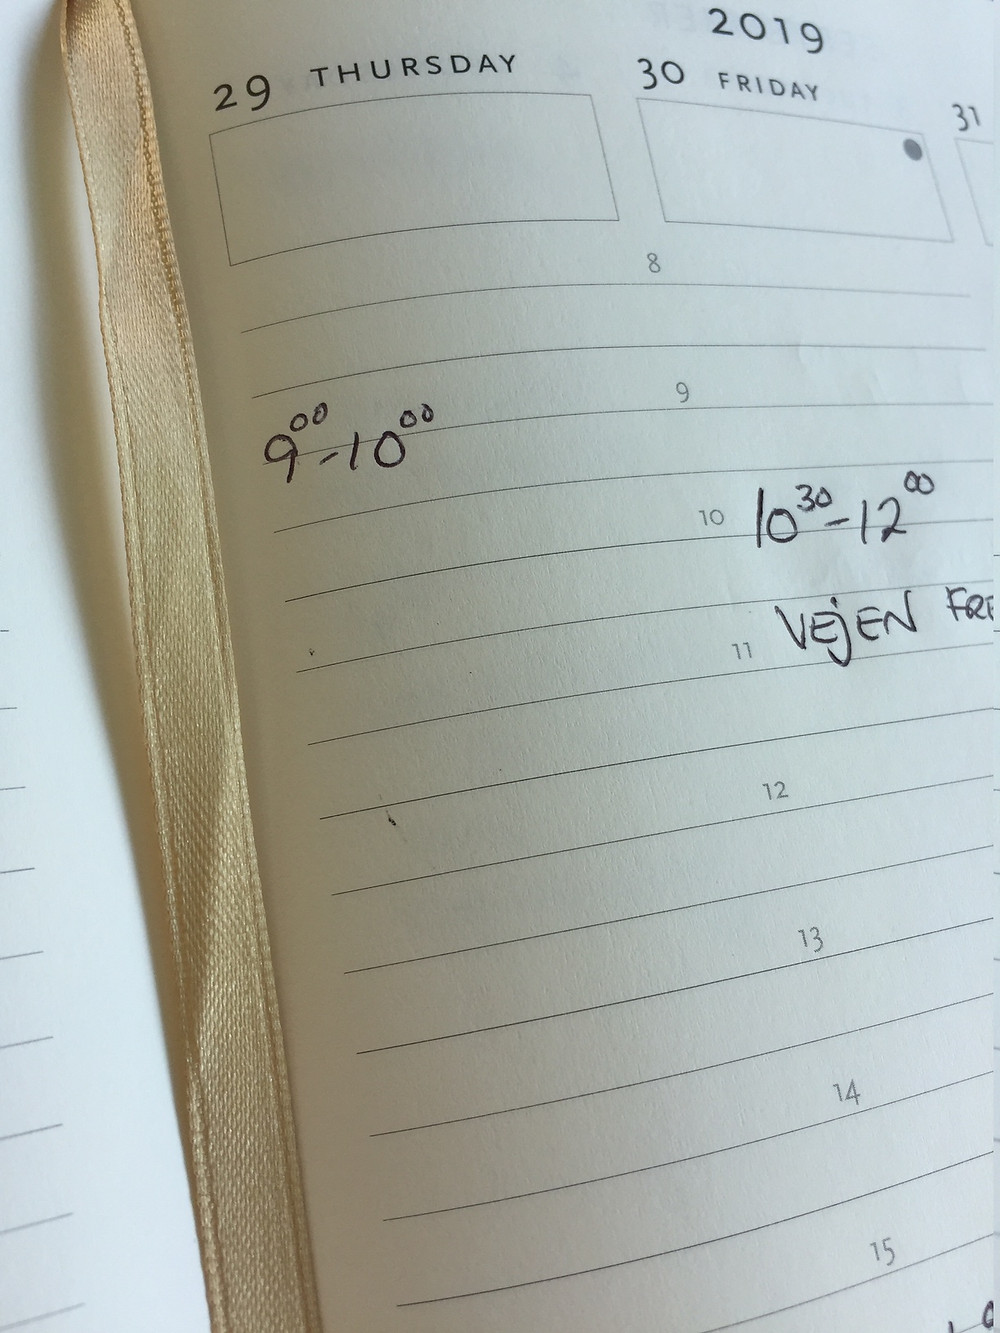 2019
29 THURSDAY
30 FRIDAY
31
8
9
9⁰⁰-10⁰⁰
10
10³⁰-12⁰⁰
VEJEN FRE
11
12
13
14
15